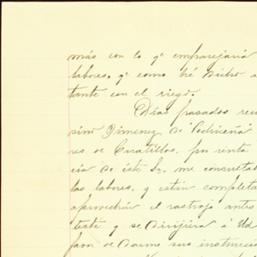 más con lo qe emparejaria
labores, qe como hé dicho a
tante con el riego.
Días pasados recu
simo Jimenez de Pedriceña
res de Cuatillos, por
cia de éste Sr. me consulta
las labores, y están completa
aprovechar el rastrojo antes
teste y se dirijiera á Ud
favor de darme sus instruccio